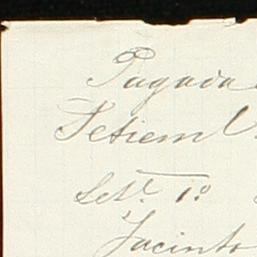 Pagada
Setiemb
Set.e 1o
Jacinto